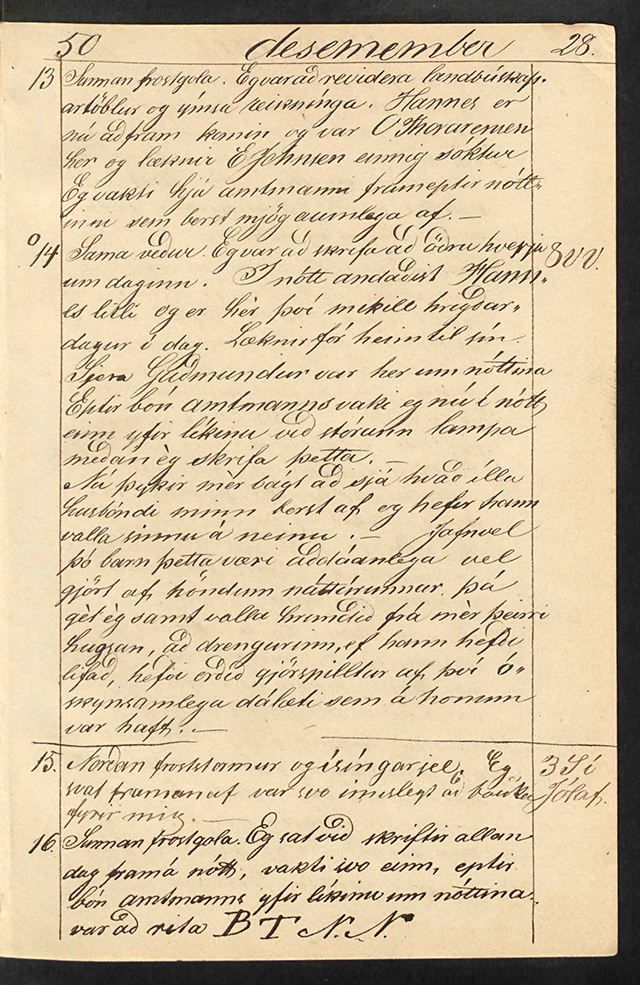 50 desemember 28.
13 Sunnan frostgola. Eg var að revidera landbúskap„
artöblur og ýmsa reikninga. Hannes er
nú aðfram komin og var O Thorarensen
her og læknir E Johnsen einnig sóktur
Eg vakti hjá amtmanni frameptir nótt„
inni sem berst mjög aumlega af. —
14 Sama veður. Eg var að skrifa að öðru hverju 8 V V.
um daginn. I nótt andaðist Hann„
es litli og er hèr því mikill hrigðar„
dagur i dag. Læknir fór heim til sín.
Sjera Guðmundur var her um nóttina
Eptir bón amtmanns vaki eg nú í nótt
einn yfir líkinu við stórann lampa
meðan èg skrifa þetta. —
Nú þykir mèr bágt að sjá hvað illa
husbóndi minn berst af og hefir hann
valla sinnu á neinu. — Jafnvel
þó barn þetta væri aðdáanlega vel
gjört af höndum náttúrunnar, þá
gèt èg samt valla hrundið frá mèr þeirri
hugsan, að drengurinn, ef hann hefði
lifað, hefði orðið gjörspilltur af því ó„
skynsamlega dálæti sem á honum
var haft. —
15. Norðan froststormur og ísingarjel. Eg 3 S i
svaf framanaf var svo imislegt að bauka Jólaf.
fyrir mig. —
16. Sunnan frostgola. Eg sat við skriftir allan
dag framá nótt, vakti svo einn, eptir
bón amtmanns yfir líkinu um nóttina
var að rita B T N. N.